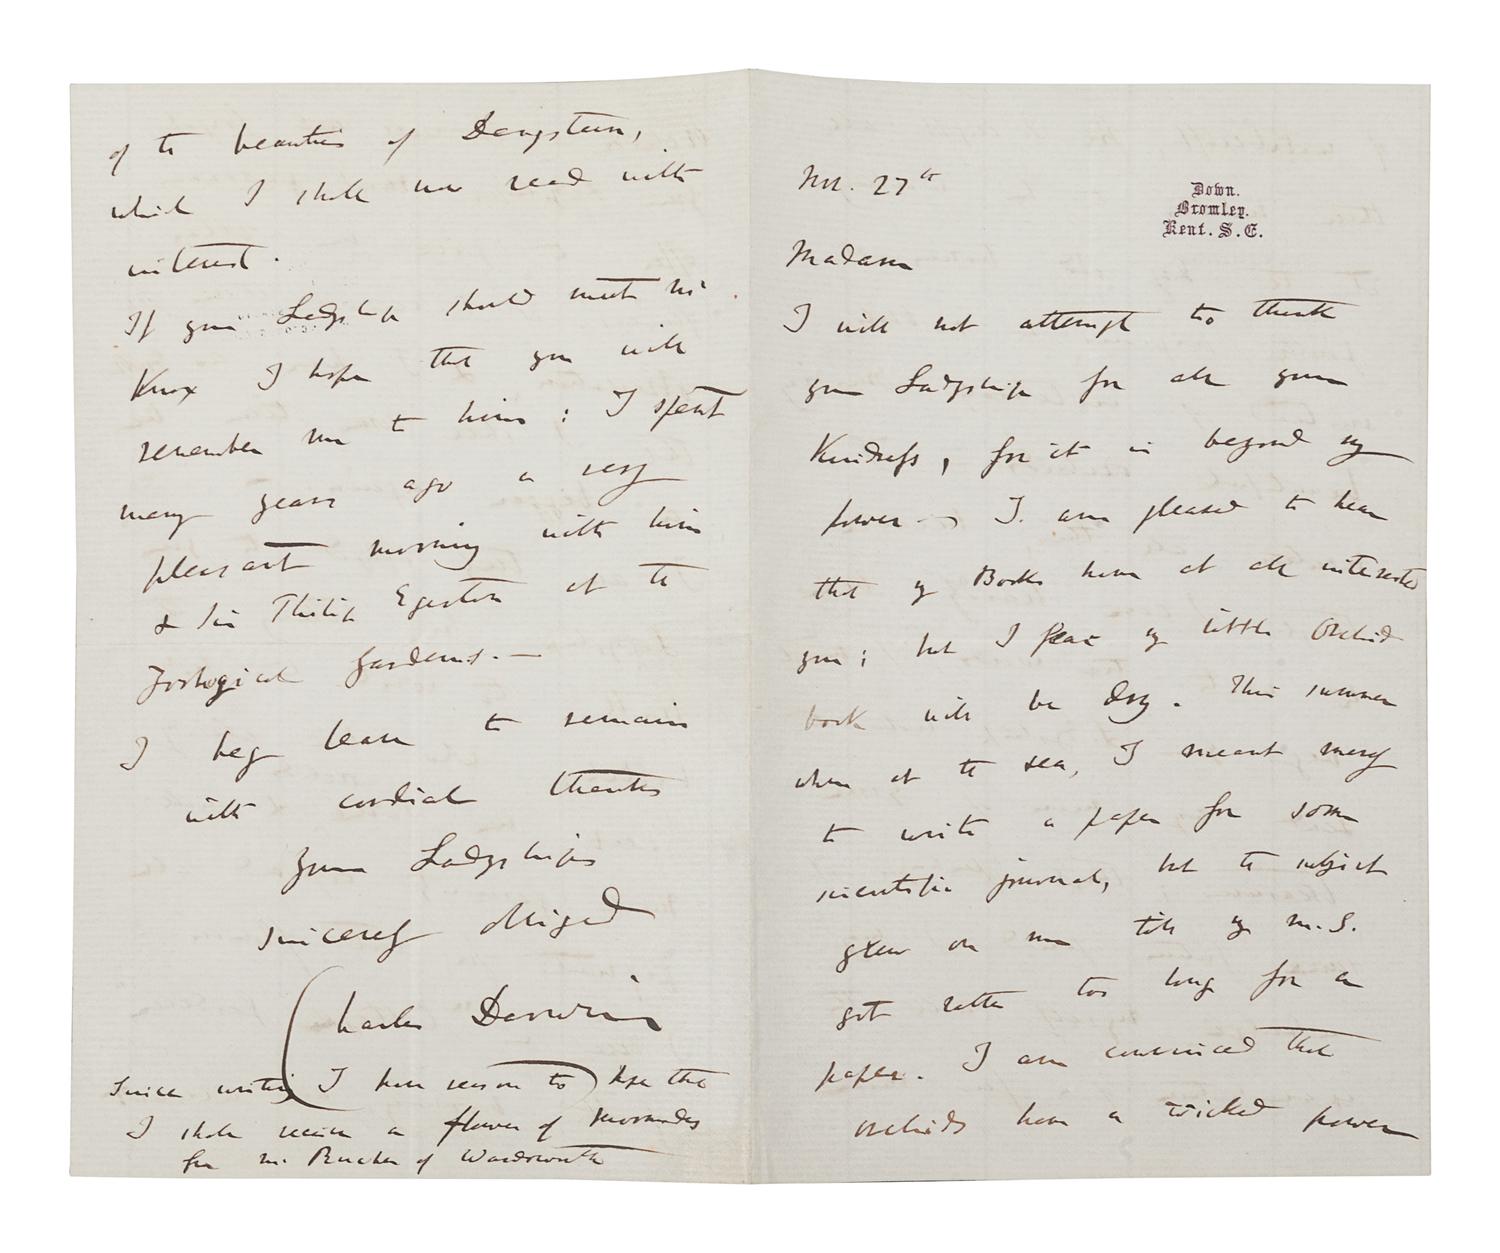 Nov. 27th
Down.
Bromley.
Kent. S.E.
Madam
I will not attempt to thank
your Ladyship for all your
kindness, for it is beyond my
power — I am pleased to hear
that my Books have at all interested
you; but I fear my little Orchid
book will be dry. This summer
when at the sea, I meant merely
to write a paper for some
scientific journal, but the subject
grew on me till my M.S.
got rather too long for a
paper. I am convinced that
orchids have a wicked power
of the beauties of Dangstein,
which I shall now read with
interest.
If your Ladyship should meet Mr
Knox I hope that you will
remember me to him: I spent
many years ago a very
pleasant morning with him
& Sir Philip Egerton at the
Zoological Gardens.—
I beg leave to remain
with cordial thanks
your Ladyship's
sincerely obliged
Charles Darwin
Since writing I have reason to hope that
I shall receive a flower of Mormodes
from Mr Rucker of Wandsworth